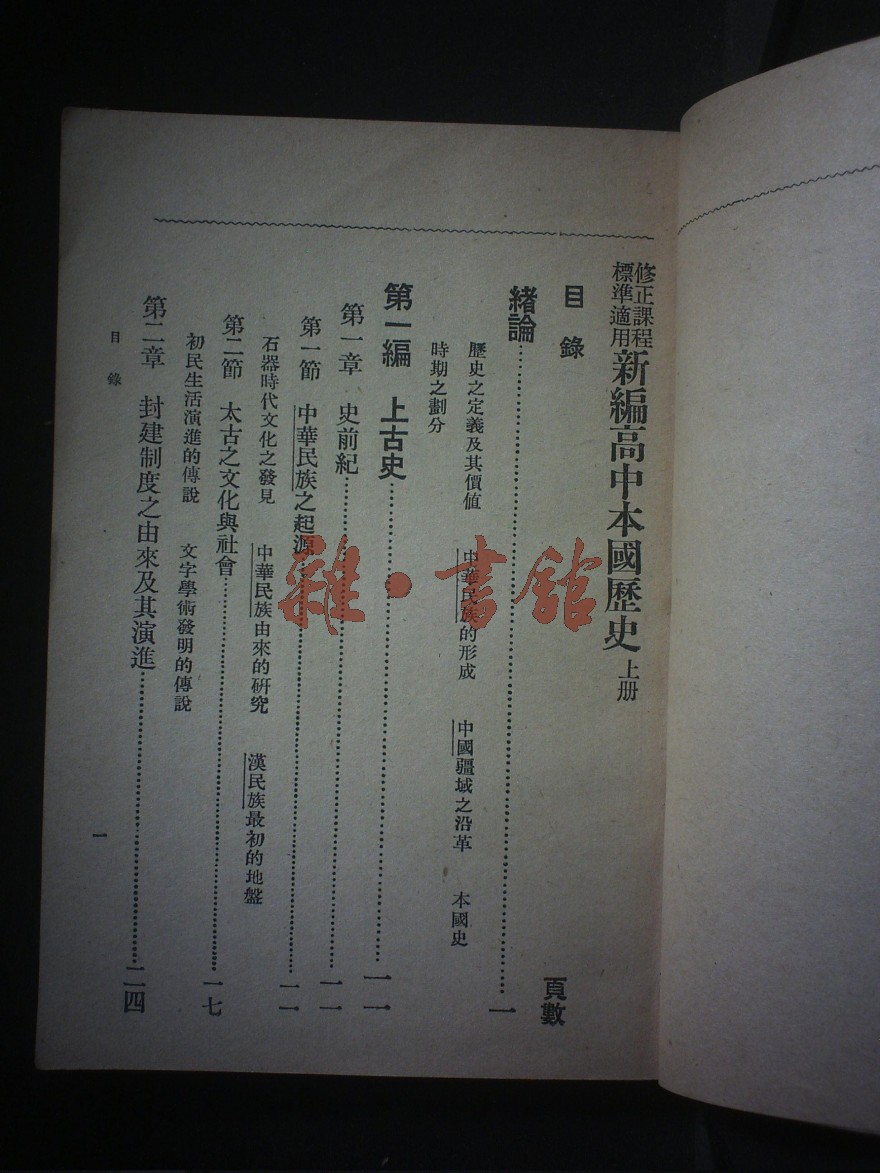 修正課程
標準適用
新編高中本國歷史 上册
目錄
頁數
緒論……一
歷史之定義及其價值 中華民族的形成 中國疆域之沿革 本國史
時期之劃分
第一編 上古史……一一
第一章 史前紀……一一
第一節 中華民族之起源……一一
石器時代文化之發見 中華民族由來的研究 漢民族最初的地盤
第二節 太古之文化與社會……一七
初民生活演進的傳說 文字學術發明的傳說
第二章 封建制度之由來及其演進……二四
目錄
一
雜·書館